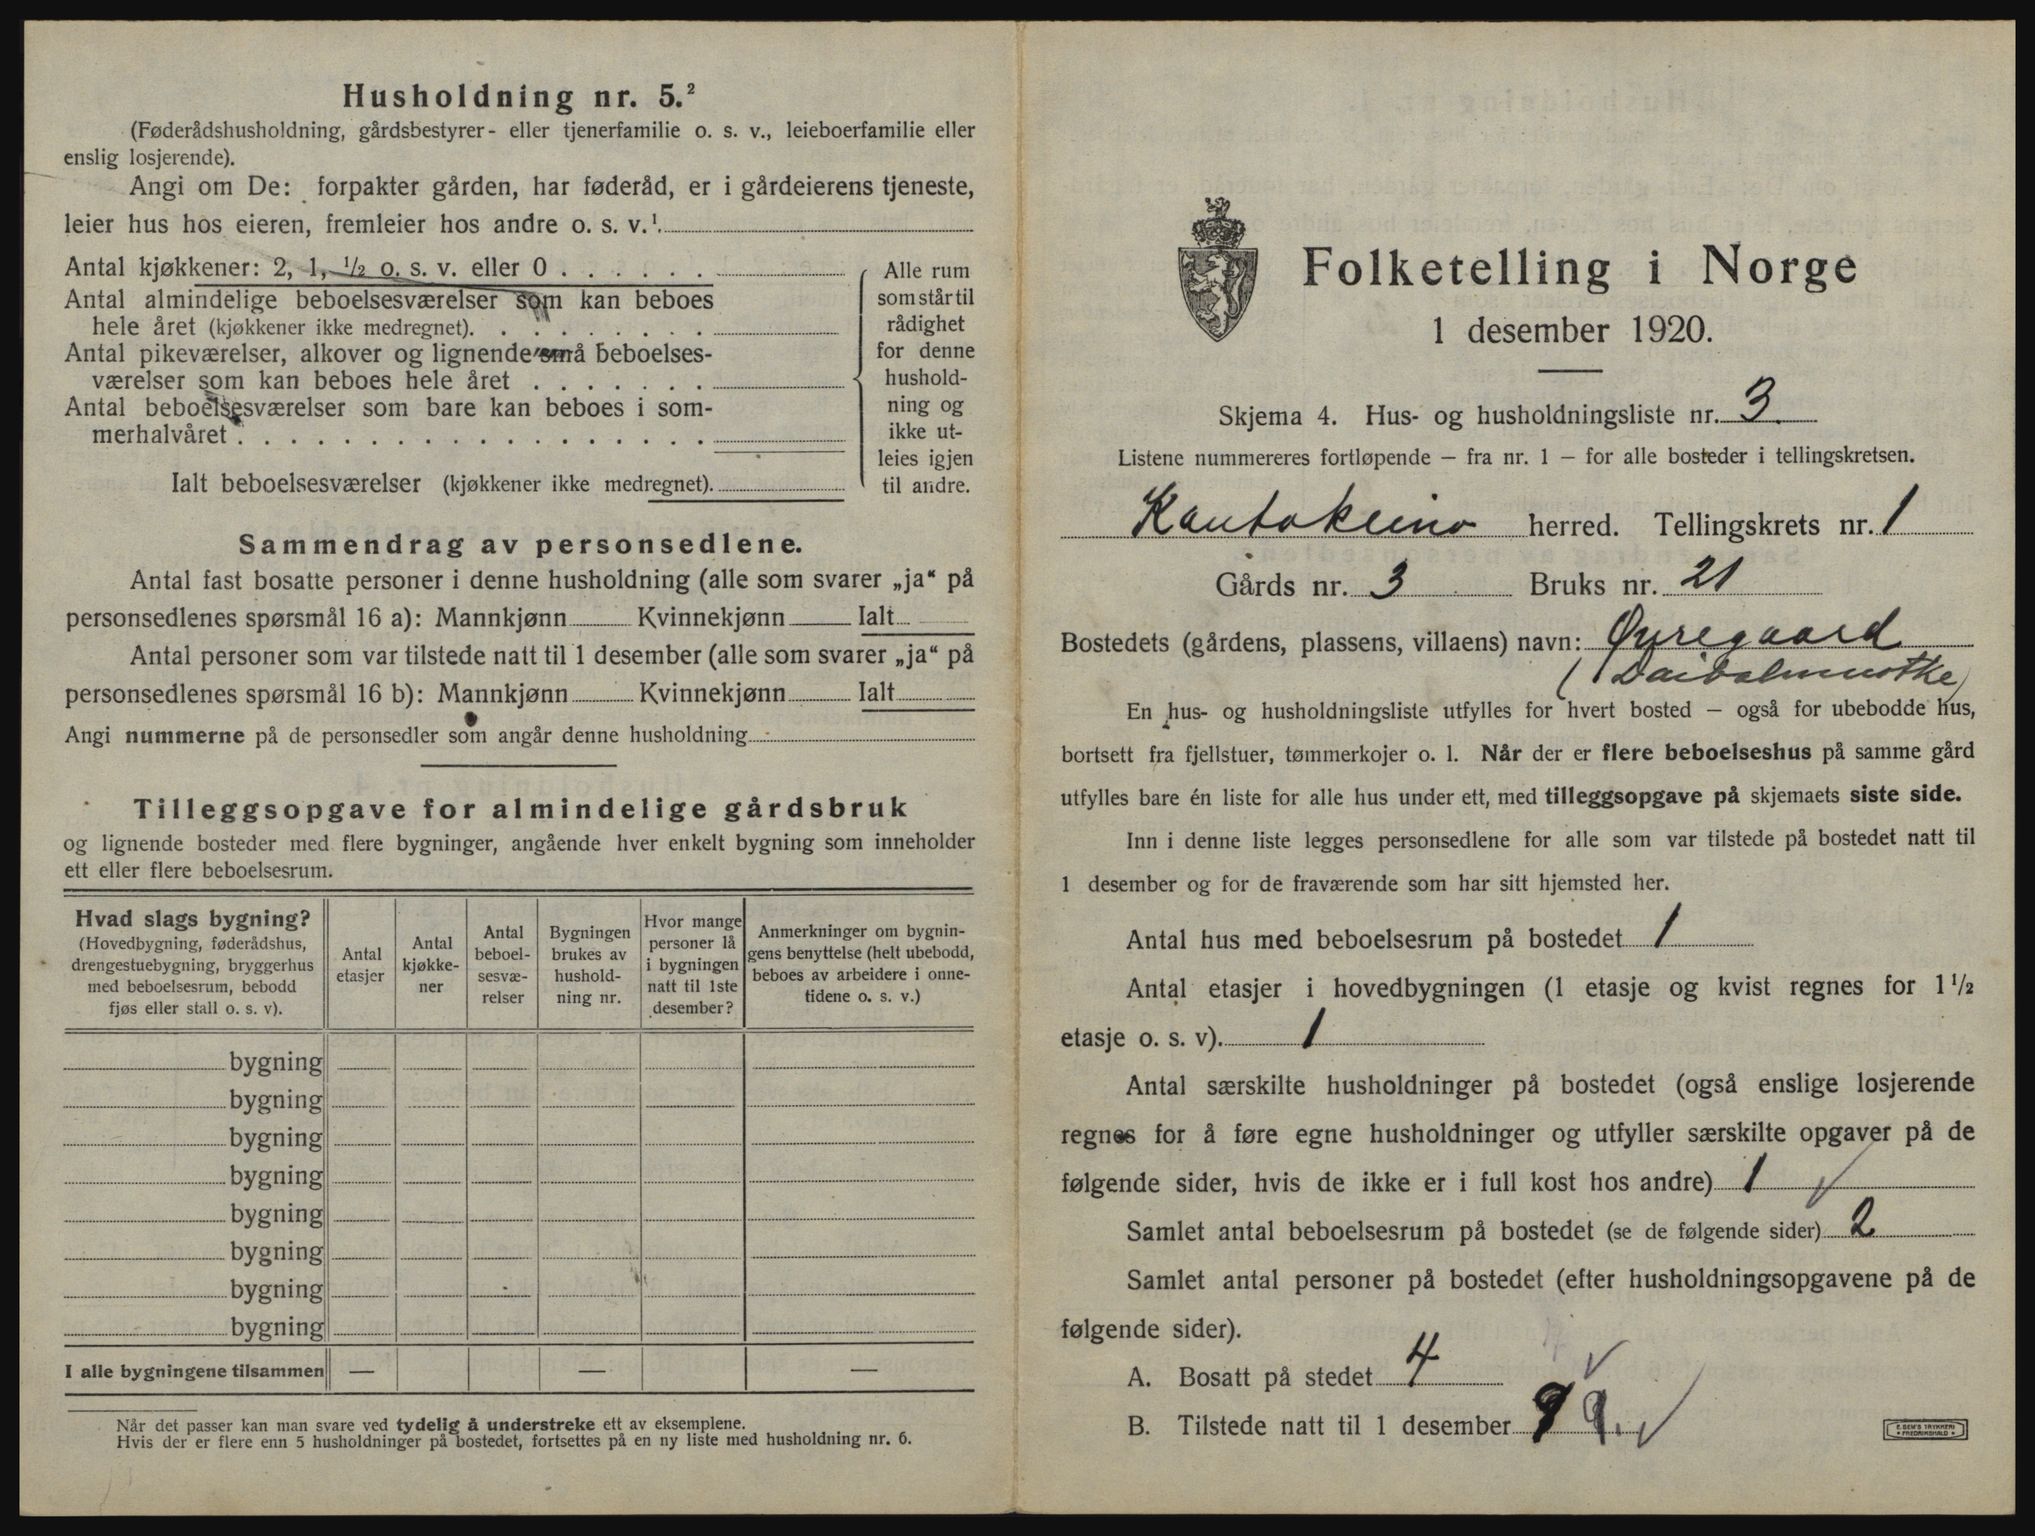 Husholdning nr. 5.²
(Føderådshusholdning, gårdsbestyrer- eller tjenerfamilie o. s. v., leieboerfamilie eller
enslig losjerende).
Angi om De: forpakter gården, har føderåd, er i gårdeierens tjeneste,
leier hus hos eieren, fremleier hos andre o. s. v.¹.
Antal kjøkkener: 2, 1, ½ o. s. v. eller 0 . . . . . .
Antal almindelige beboelsesværelser som kan beboes
hele året (kjøkkener ikke medregnet). . . . . . . . .
Antal pikeværelser, alkover og lignende små beboelses-
værelser som kan beboes hele året . . . . . . .
Antal beboelsesværelser som bare kan beboes i som-
merhalvåret . . . . . . . . . . . . . . . . . .
Ialt beboelsesværelser (kjøkkener ikke medregnet).
Alle rum
som står til
rådighet
for denne
hushold-
ning og
ikke ut-
leies igjen
til andre.
Sammendrag av personsedlene.
Antal fast bosatte personer i denne husholdning (alle som svarer „ja“ på
personsedlenes spørsmål 16 a): Mannkjønn Kvinnekjønn Ialt
Antal personer som var tilstede natt til 1 desember (alle som svarer „ja“ på
personsedlenes spørsmål 16 b): Mannkjønn Kvinnekjønn Ialt
Angi nummerne på de personsedler som angår denne husholdning
Tilleggsopgave for almindelige gårdsbruk
og lignende bosteder med flere bygninger, angående hver enkelt bygning som inneholder
ett eller flere beboelsesrum.
Hvad slags bygning?
(Hovedbygning, føderådshus,
drengestuebygning, bryggerhus
med beboelsesrum, bebodd
fjøs eller stall o. s. v).
Antal
etasjer
Antal
kjøkke-
ner
Antal
beboel-
sesvæ-
relser
Bygningen
brukes av
hushold-
ning nr.
Hvor mange
personer lå
i bygningen
natt til 1ste
desember?
Anmerkninger om bygnin-
gens benyttelse (helt ubebodd,
beboes av arbeidere i onne-
tidene o. s. v.)
bygning
bygning
bygning
bygning
bygning
bygning
bygning
bygning
I alle bygningene tilsammen — — —
Når det passer kan man svare ved tydelig å understreke ett av eksemplene.
Hvis der er flere enn 5 husholdninger på bostedet, fortsettes på en ny liste med husholdning nr. 6.
Folketelling i Norge
1 desember 1920.
Skjema 4. Hus- og husholdningsliste nr. 3
Listene nummereres fortløpende – fra nr. 1 – for alle bosteder i tellingskretsen.
Kautokeino herred. Tellingskrets nr. 1
Gårds nr. 3 Bruks nr. 21
Bostedets (gårdens, plassens, villaens) navn: Øyregaard
En hus- og husholdningsliste utfylles for hvert bosted – også for ubebodde hus,
bortsett fra fjellstuer, tømmerkojer o. l. Når der er flere beboelseshus på samme gård
utfylles bare én liste for alle hus under ett, med tilleggsopgave på skjemaets siste side.
Inn i denne liste legges personsedlene for alle som var tilstede på bostedet natt til
1 desember og for de fraværende som har sitt hjemsted her.
Antal hus med beboelsesrum på bostedet 1
Antal etasjer i hovedbygningen (1 etasje og kvist regnes for 1½
etasje o. s. v). 1
Antal særskilte husholdninger på bostedet (også enslige losjerende
regnes for å føre egne husholdninger og utfyller særskilte opgaver på de
følgende sider, hvis de ikke er i full kost hos andre) 1 ✓
Samlet antal beboelsesrum på bostedet (se de følgende sider) 2
Samlet antal personer på bostedet (efter husholdningsopgavene på de
følgende sider).
A. Bosatt på stedet 4 ✓
B. Tilstede natt til 1 desember 9 9. ✓
E. SEM'S TRYKKERI
FREDRIKSHALD